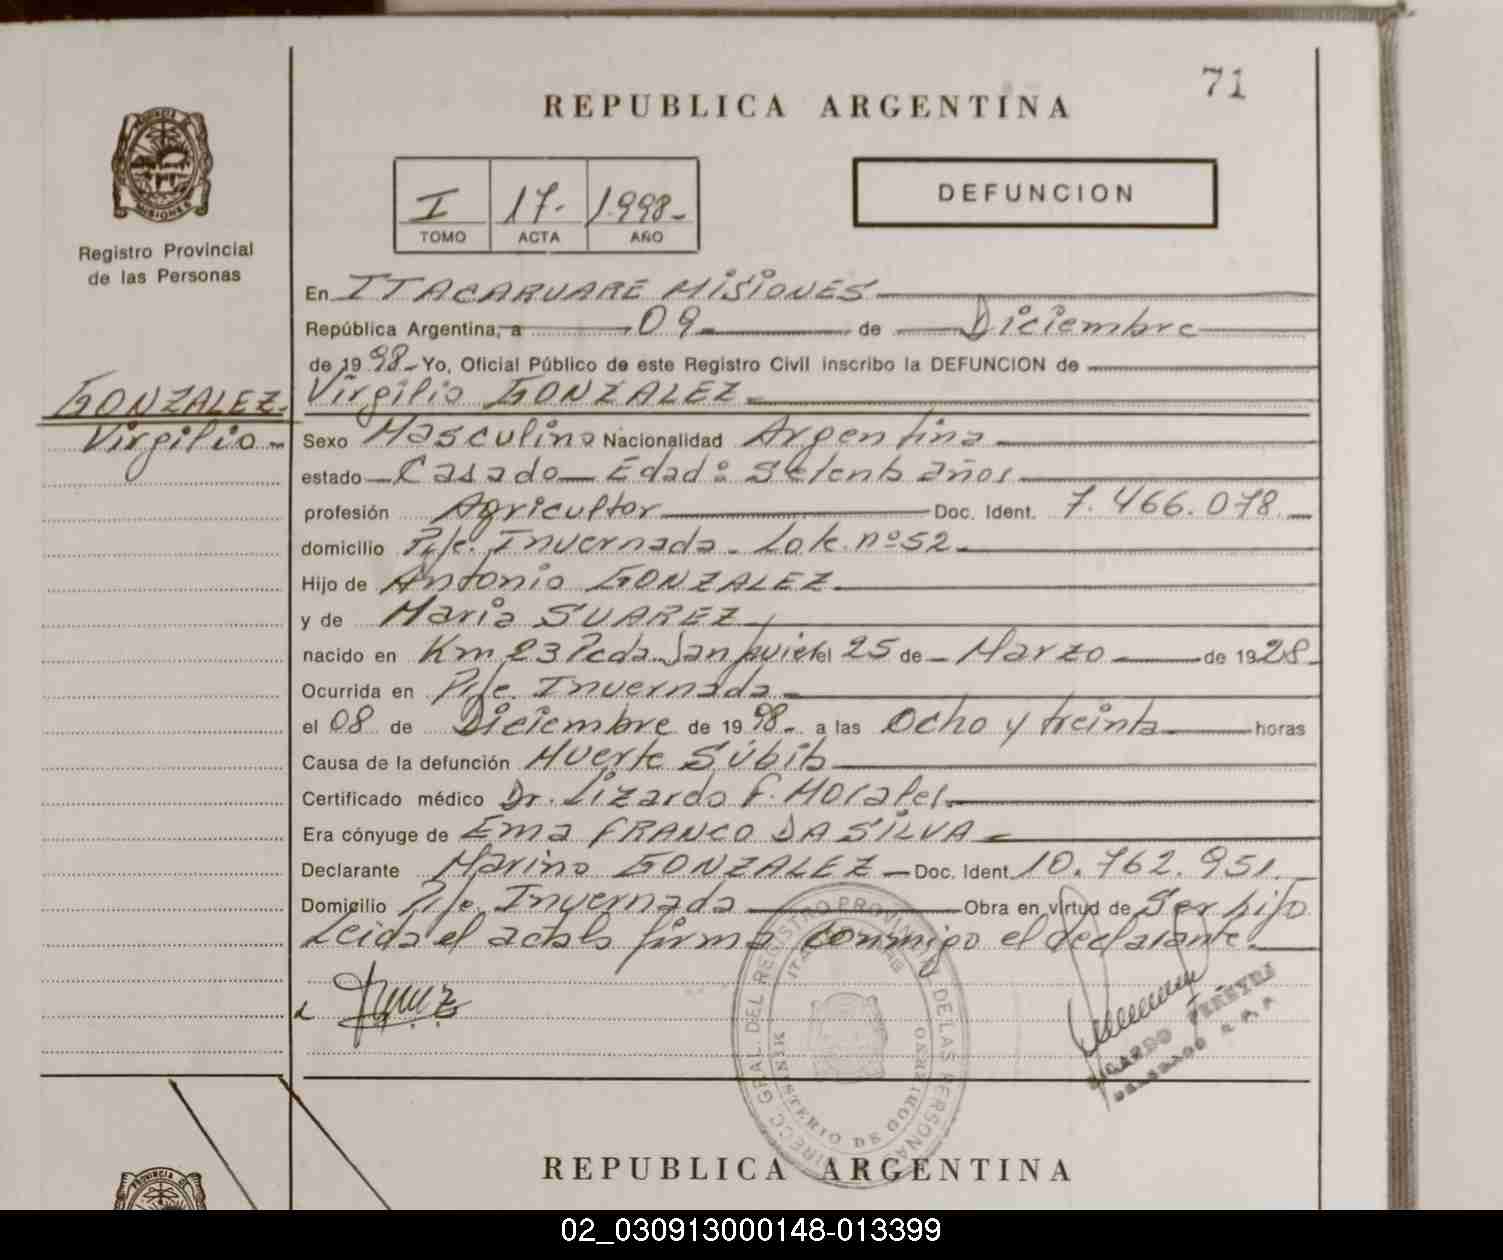 71
REPUBLICA ARGENTINA
PROVINCIA DE
MISIONES
Registro Provincial
de las Personas
I 17- 1.998-
TOMO ACTA AÑO
DEFUNCION
En ITACARUARE MISIONES
República Argentina, a 09 de Diciembre
de 1998- Yo, Oficial Público de este Registro Civil inscribo la DEFUNCION de
GONZALEZ- Virgilio GONZALEZ-
Virgilio- Sexo Masculino Nacionalidad Argentina
estado Casado Edad: Setenta años
profesión Agricultor Doc. Ident. 7.466.078
domicilio Pje. Invernada - Lote nº 52
Hijo de Antonio GONZALEZ
y de Maria SUAREZ
nacido en Km 23 Pcda. San Javier el 25 de Marzo de 1928
Ocurrida en Pje. Invernada
el 08 de Diciembre de 1998- a las Ocho y treinta horas
Causa de la defunción Muerte Súbita
Certificado médico Dr. Lizardo F.
Era cónyuge de Ema FRANCO DA SILVA
Declarante Marino GONZALEZ - Doc. Ident 10.762.951
Domicilio Pje. Invernada Obra en virtud de Ser hijo
Leida el acta la firma conmigo el declarante.
DIRECC. GRAL. DEL REGISTRO PROVINCIAL DE LAS PERSONAS
MINISTERIO DE GOBIERNO
RICARDO FERREYRA
DELEGADO R.P.P.
REPUBLICA ARGENTINA
PROVINCIA DE
02_030913000148-013399